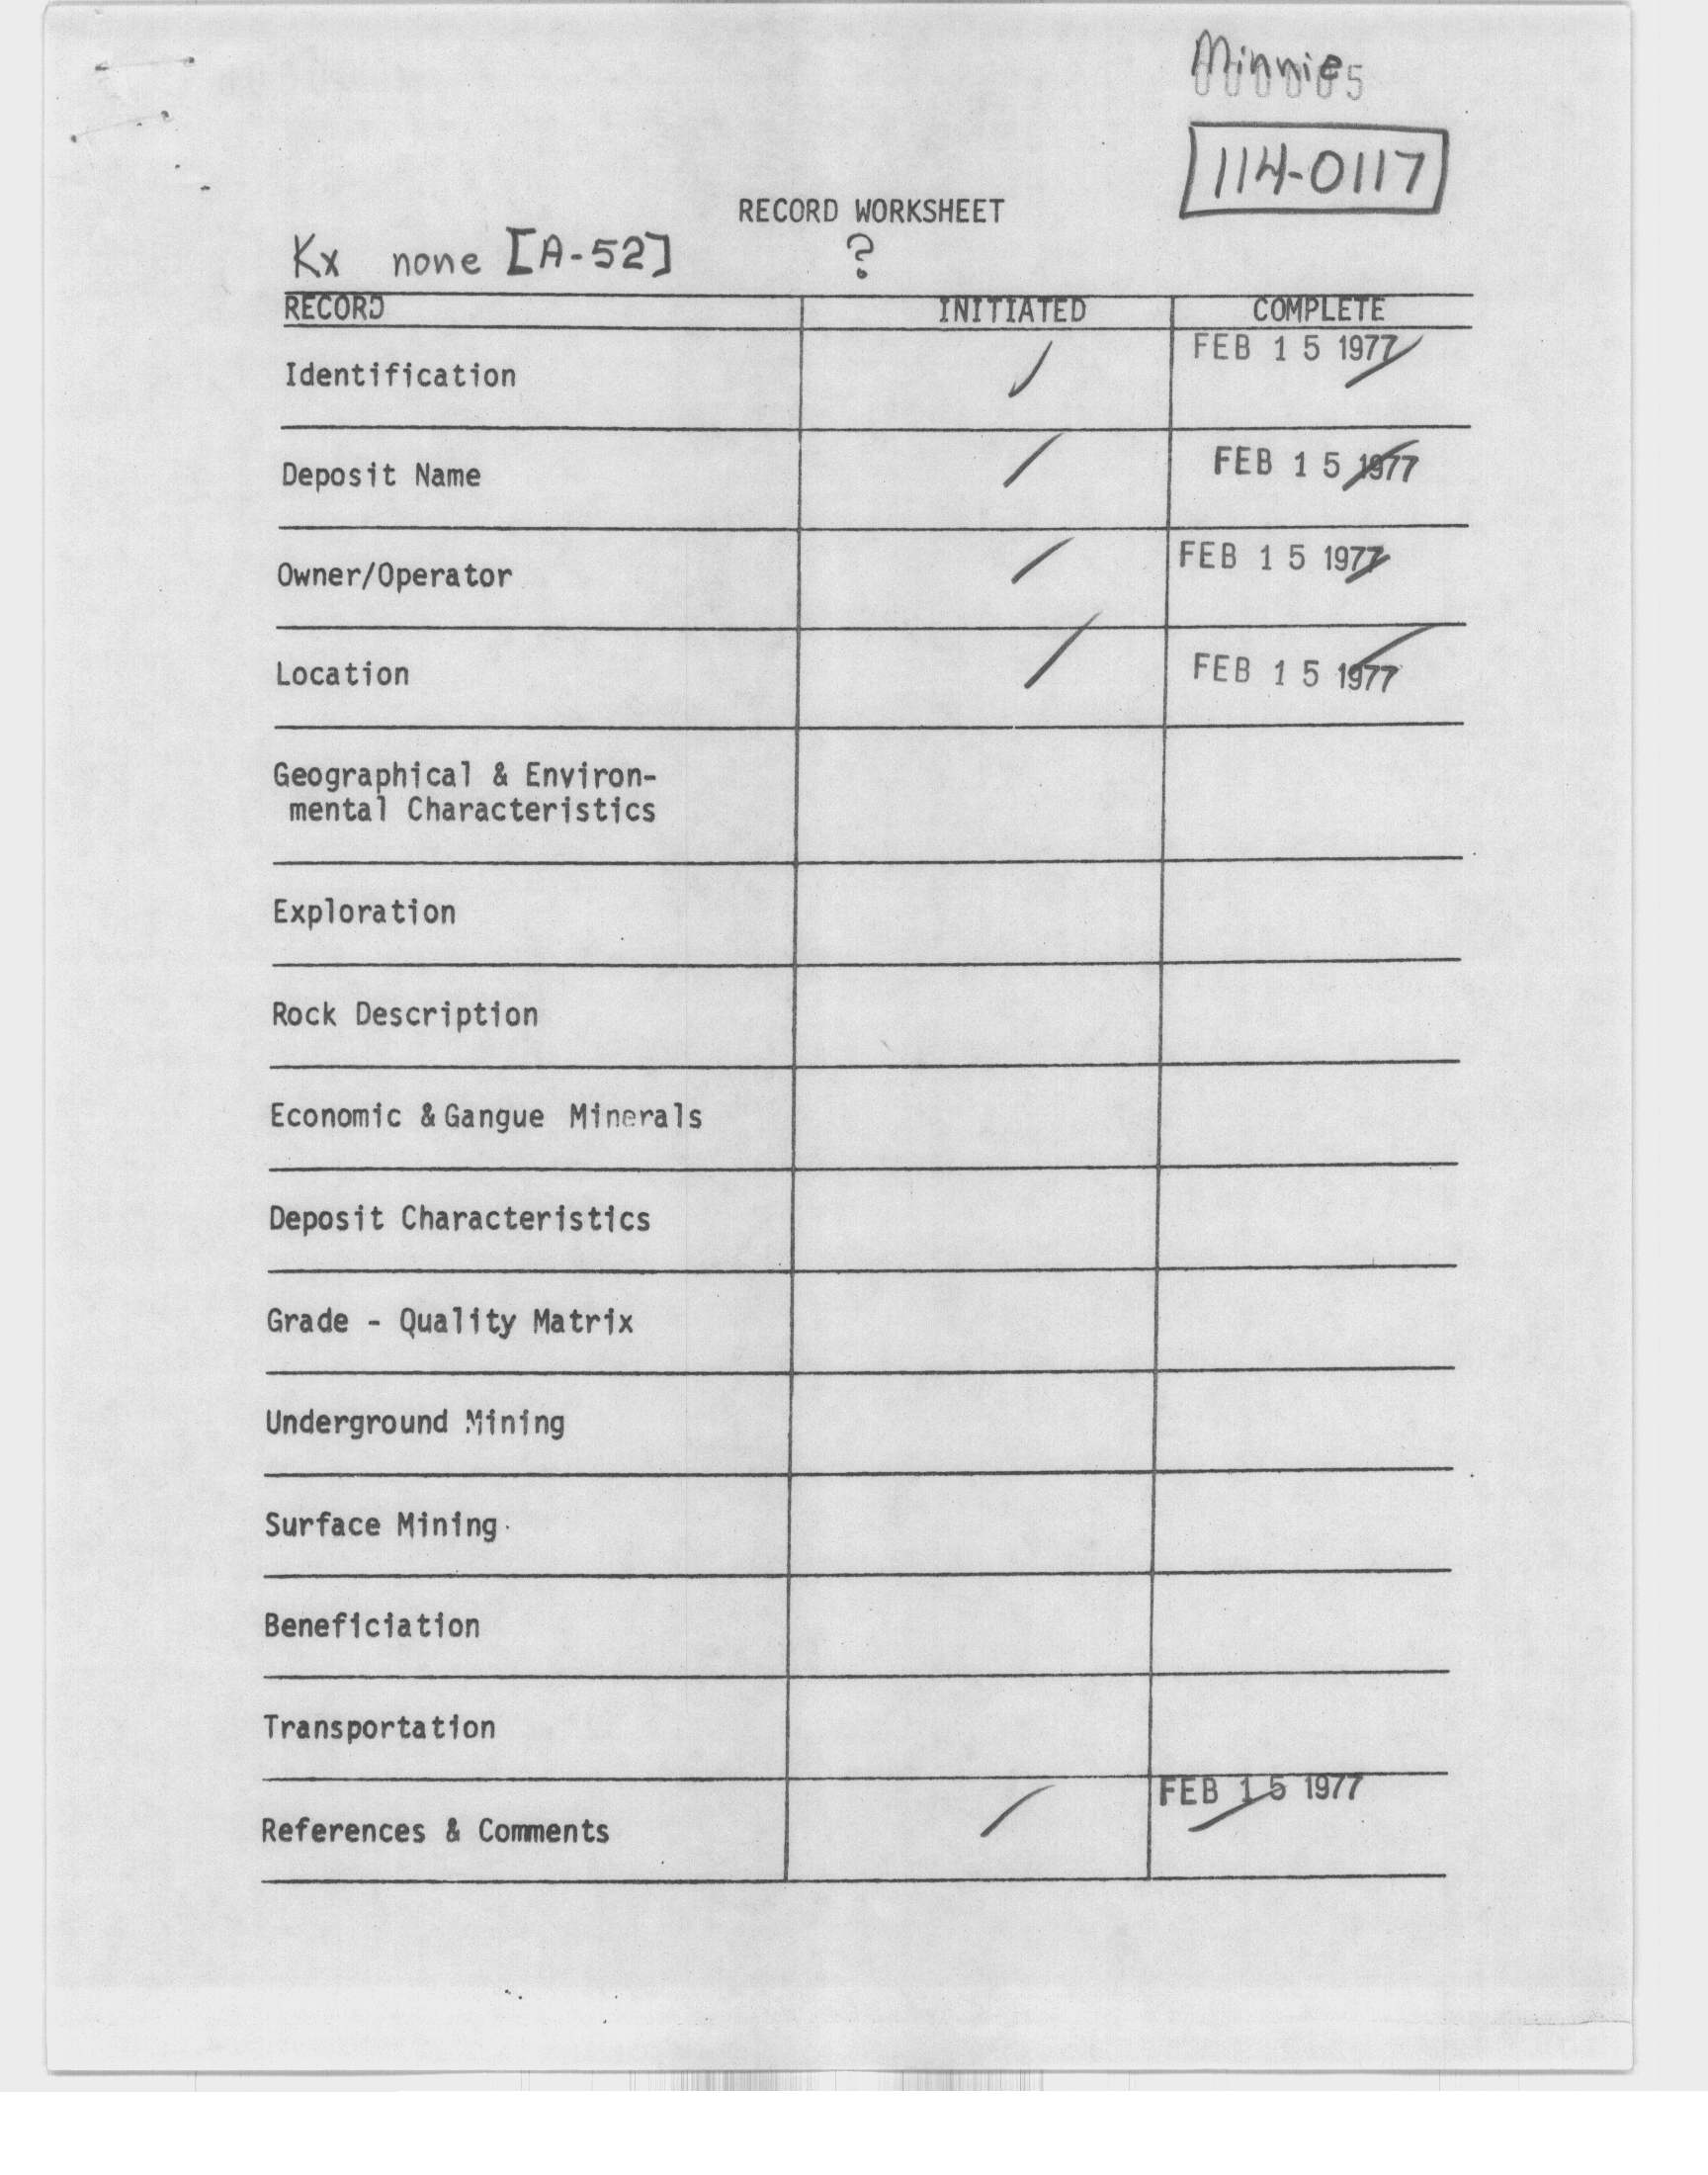 Minnie
114-0117
RECORD WORKSHEET
Kx none [A-52] ?
RECORD INITIATED COMPLETE
Identification ✓ FEB 15 1977
Deposit Name / FEB 15 1977
Owner/Operator / FEB 15 1977
Location / FEB 15 1977
Geographical & Environ-
mental Characteristics
Exploration
Rock Description
Economic & Gangue Minerals
Deposit Characteristics
Grade - Quality Matrix
Underground Mining
Surface Mining
Beneficiation
Transportation
References & Comments / FEB 15 1977